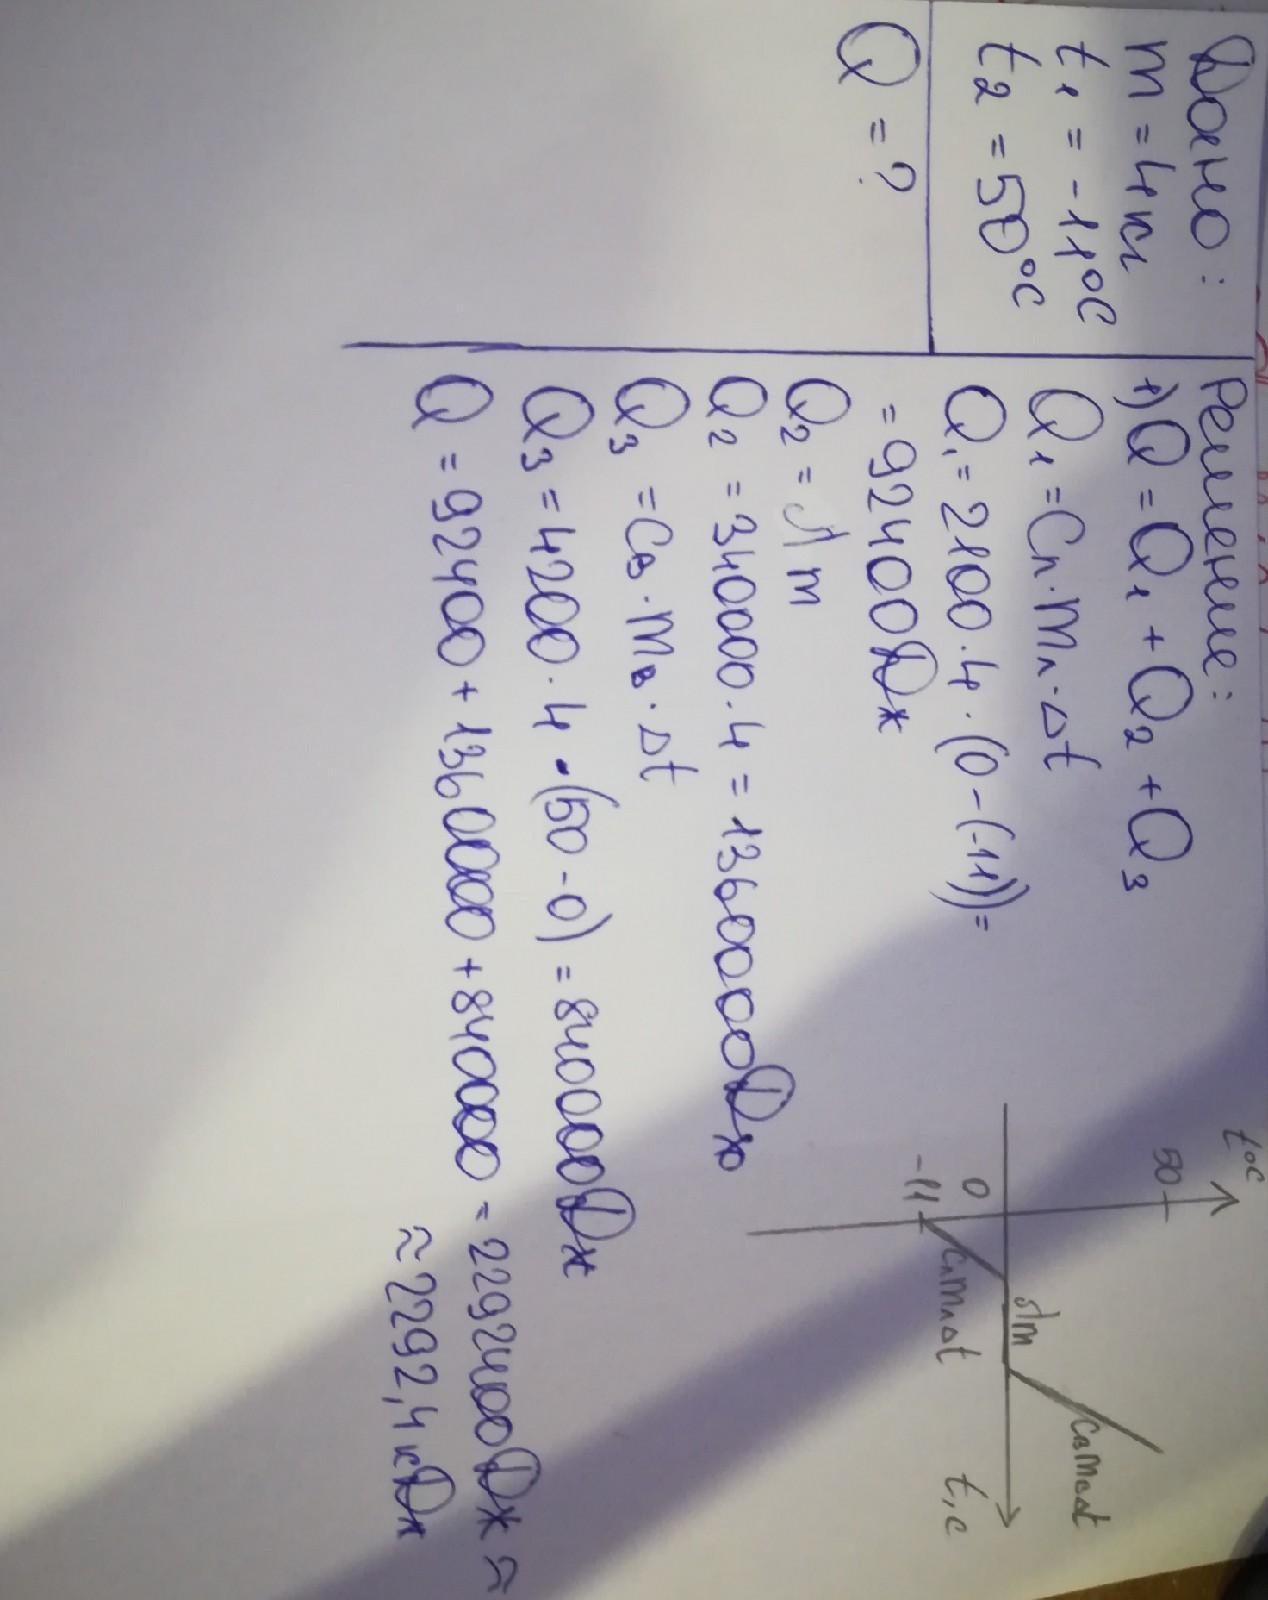 Дано:
m = 4 кг
t₁ = -11°C
t₂ = 50°C
Q = ?
Решение:
1) Q = Q₁ + Q₂ + Q₃
Q₁ = Cл · mл · Δt
Q₁ = 2100 · 4 · (0 - (-11)) =
= 92400 Дж
Q₂ = λ m
Q₂ = 340000 · 4 = 1360000 Дж
Q₃ = Cв · mв · Δt
Q₃ = 4200 · 4 · (50 - 0) = 840000 Дж
Q = 92400 + 1360000 + 840000 = 2292400 Дж ≈
≈ 2292,4 кДж
t°C
50
0
-11
CлmлΔt
λm
CвmвΔt
t, c